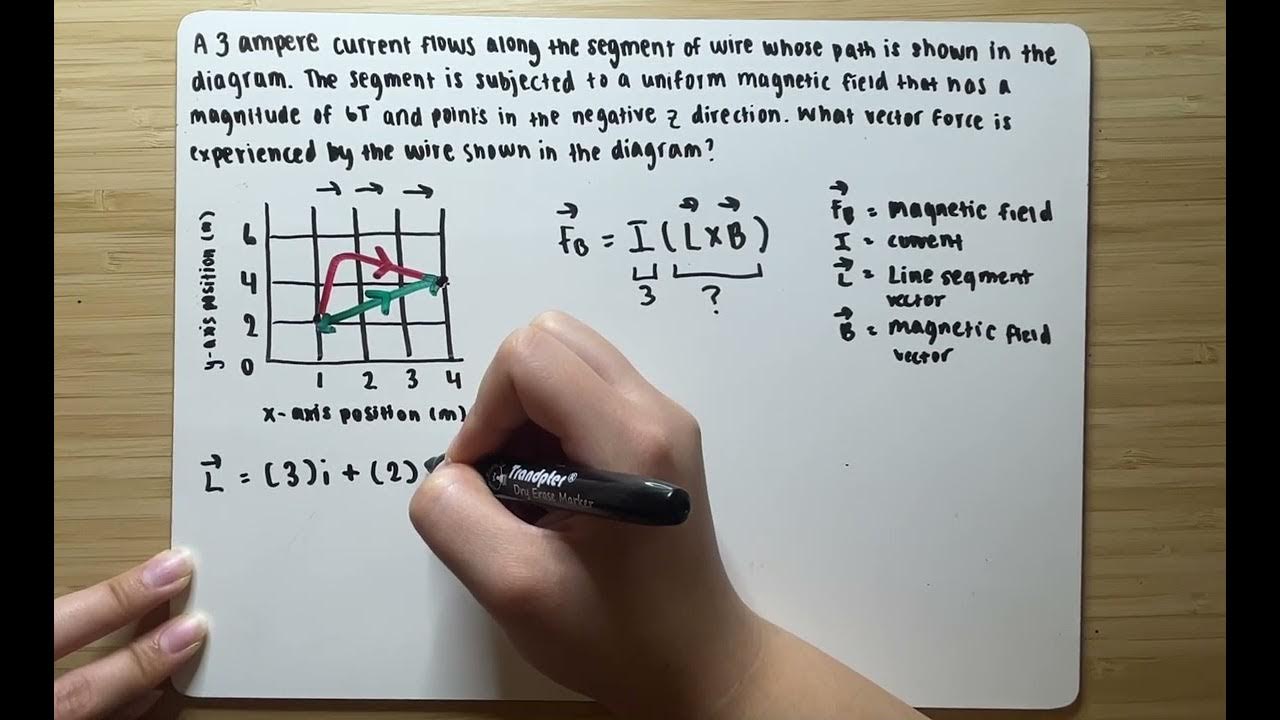 A 3 ampere current flows along the segment of wire whose path is shown in the
diagram. The segment is subjected to a uniform magnetic field that has a
magnitude of 6T and points in the negative z direction. What vector force is
experienced by the wire shown in the diagram?
y-axis position (m)
6
4
2
0
1 2 3 4
x-axis position (m)
F⃗B = I (L⃗ x B⃗)
3 ?
F⃗B = magnetic field
I = current
L⃗ = Line segment
vector
B⃗ = magnetic field
vector
L⃗ = (3)i + (2)
Trandpter®
Dry Erase Marker